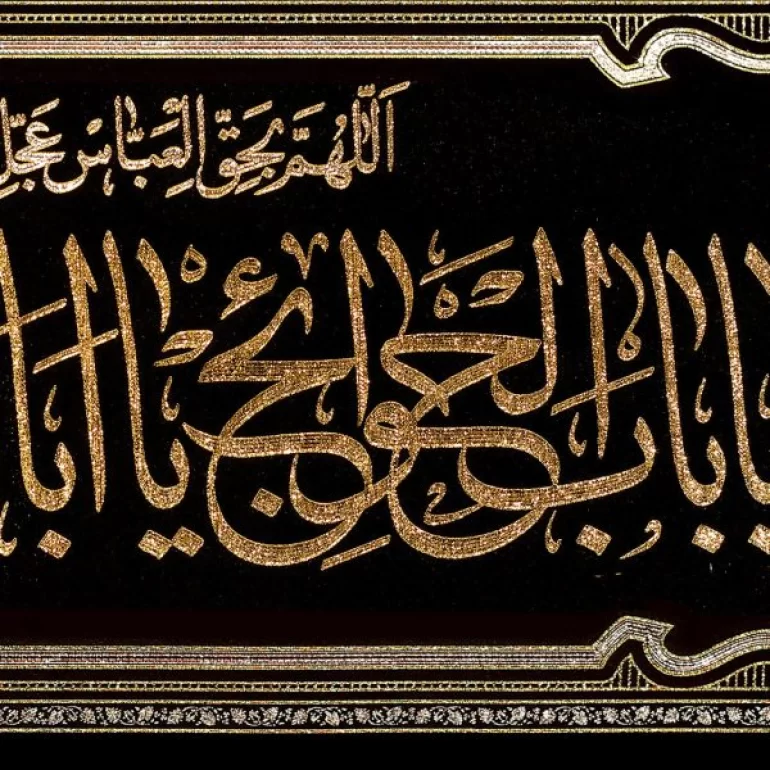 اَللّٰهُمَّ بِحَقِّ الْعَبّاسْ عَجِّلْ
يا بابَ الْحَوائِجْ يا اَبَا